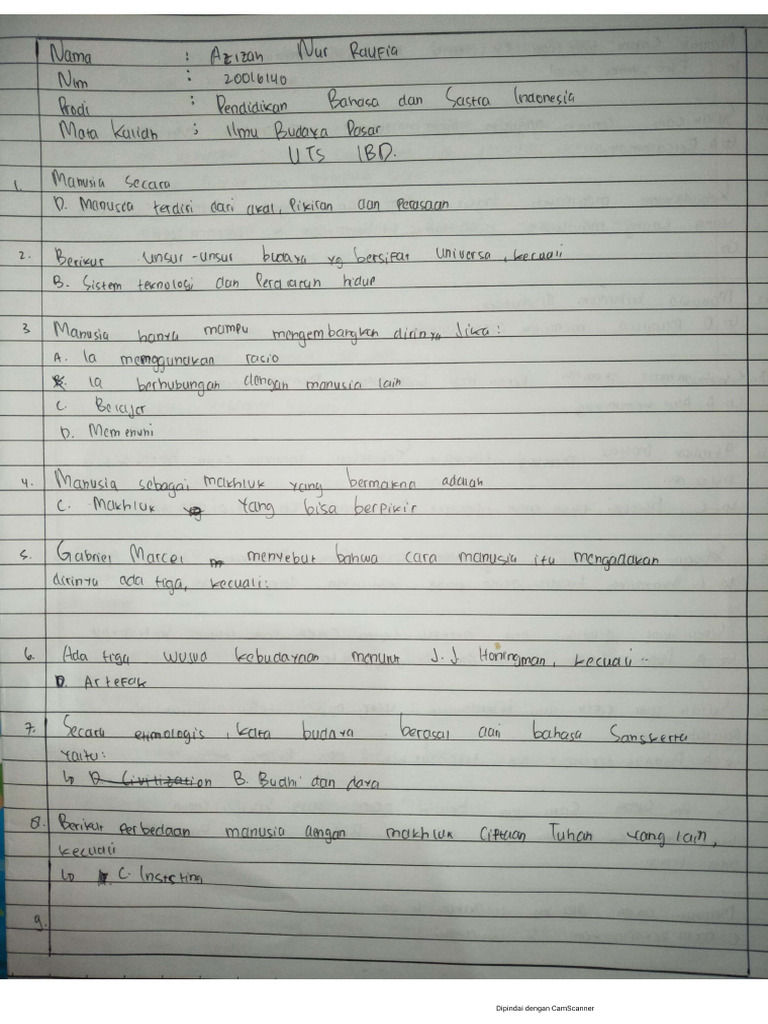 Nama : Azizah Nur Raufia
Nim : 20016140
Prodi : Pendidikan Bahasa dan Sastra Indonesia
Mata Kuliah : Ilmu Budaya Dasar
UTS IBD.
1. Manusia secara
D. Manusia terdiri dari akal, pikiran dan perasaan
2. Berikut unsur-unsur budaya yg bersifat universa, kecuali
B. Sistem teknologi dan peralatan hidup
3 Manusia hanya mampu mengembangkan dirinya jika:
A. Ia menggunakan rasio
B. Ia berhubungan dengan manusia lain
C. Belajar
D. Memenuhi
4. Manusia sebagai makhluk yang bermakna adalah
C. Makhluk yang bisa berpikir
5. Gabriel Marcel menyebut bahwa cara manusia itu mengadakan
dirinya ada tiga, kecuali:
6. Ada tiga wujud kebudayaan menurut J.J Honingman, kecuali..
D. Artefak
7. Secara etimologis, kata budaya berasal dari bahasa Sanskerta
yaitu:
↳ D. Civitization B. Budhi dan daya
8. Berikut perbedaan manusia dengan makhluk ciptaan Tuhan yang lain,
kecuali
↳ C. Insting
9.
Dipindai dengan CamScanner